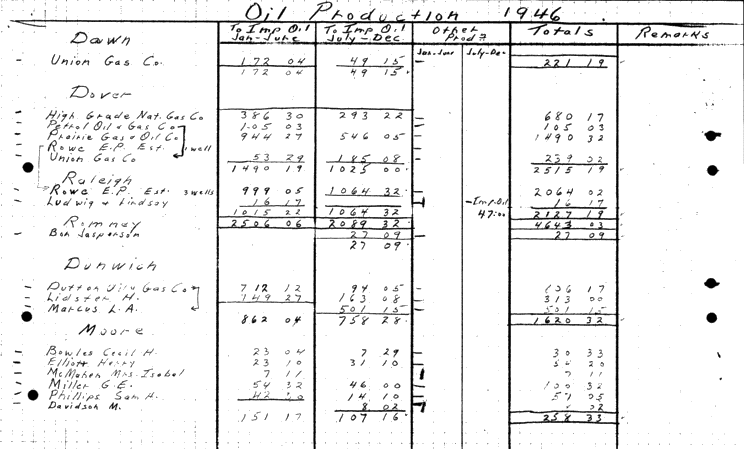 Oil Production 1946
To Imp Oil Jan-June To Imp Oil July-Dec Other Prod? Jan-June July-Dec Totals Remarks
Dawn
Union Gas Co. 172 04 49 15 221 19
172 04 49 15
Dover
High Grade Nat. Gas Co 386 30 293 22 680 17
Petrol Oil & Gas Co 105 03 105 03
Prairie Gas & Oil Co 944 27 546 05 1490 32
Rowe E.P. Est. well
Union Gas Co 53 29 185 08 239 02
1490 19 1025 00 2515 19
Raleigh
Rowe E.P. Est. 3 wells 999 05 1064 32 2064 02
Ludwig & Lindsay 16 17 Imp. Oil 16 17
1015 22 1064 32 47:00 2127 19
Romney 2506 06 2089 32 4643 03
Bon Jasperson 27 09 27 09
27 09
Dunwich
Dutton Gas Co 712 12 94 05 17
Lidster H. 149 27 163 08 313 00
Marcus L.A. 501 15 501 15
862 04 758 28 1620 32
Moore
Bowles Cecil H. 23 04 7 29 30 33
Elliott Henry 23 10 31 10 54 20
McMahen Mrs. Isobel 7 11 7 11
Miller G.E. 54 32 46 00 100 32
Phillips Sam H. 14 10 05
Davidson M. 8 02 02
151 17 107 16 258 33